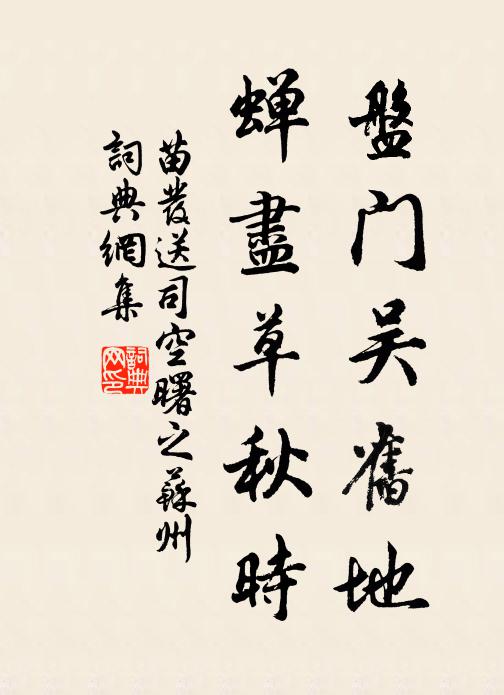 盤门吴舊地
蝉盡草秋時
苗發送司空曙之蘇州
詞典網集
詞典网印